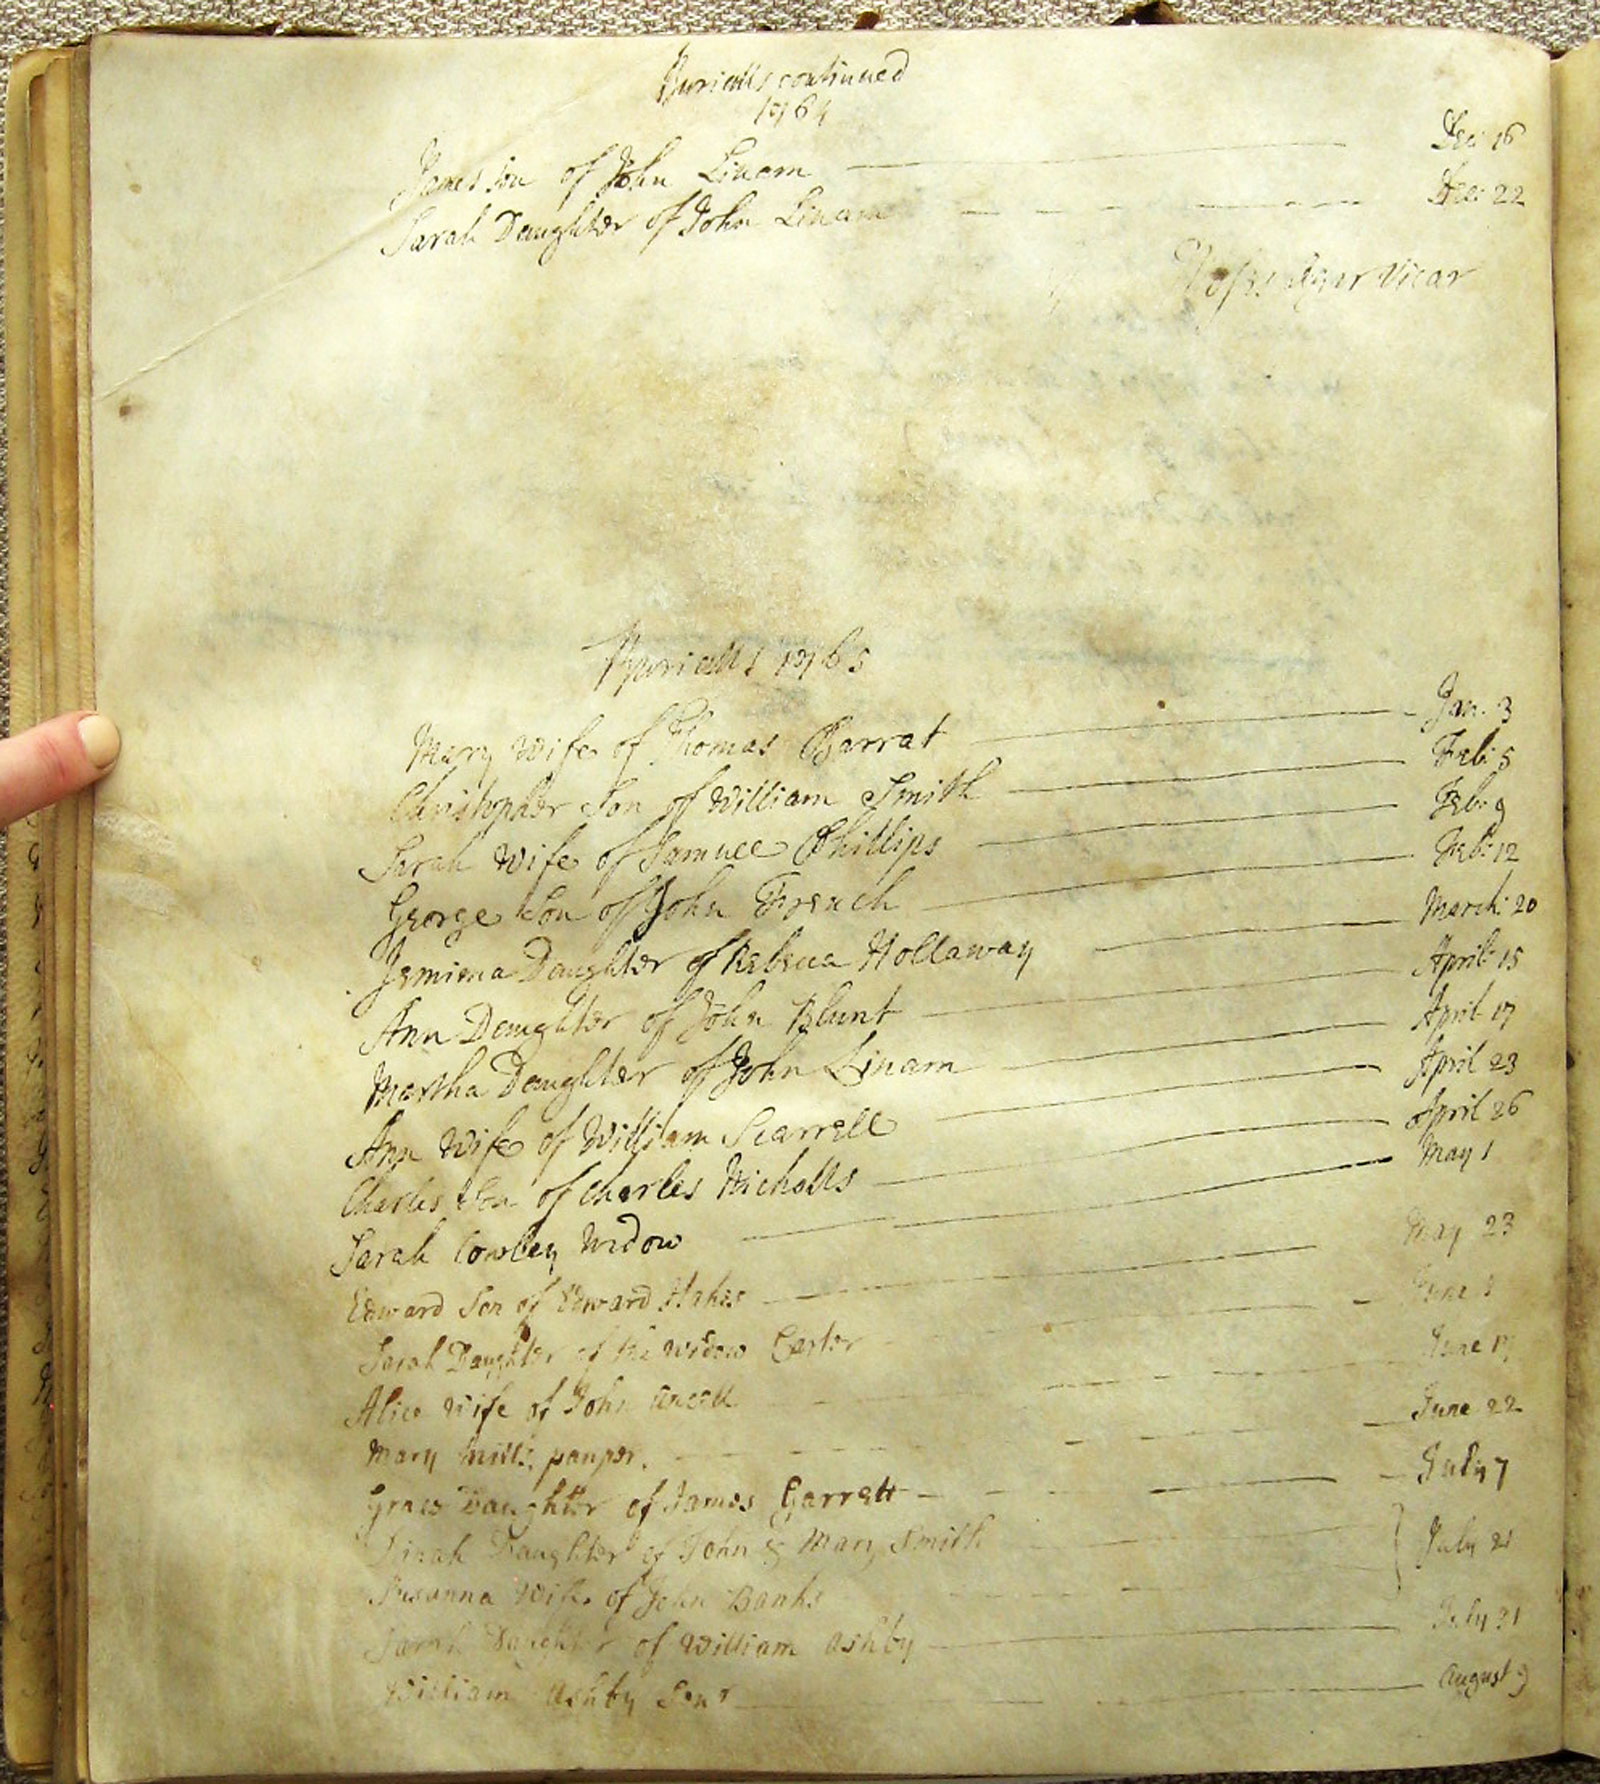 Burialls continued
1764
James Son of John Linam Dec: 16
Sarah Daughter of John Linam Dec: 22
Moses Agar Vicar
Burialls 1765
Mary Wife of Thomas Barrat Jan: 3
Christopher Son of William Smith Feb: 5
Sarah Wife of Samuel Phillips Feb: 9
George Son of John French Feb: 12
Jemima Daughter of Rebecca Hollaway March: 20
Ann Daughter of John Blunt April 15
Martha Daughter of John Linam April 17
Ann Wife of William Scarrell April 23
Charles Son of Charles Nicholls April 26
Sarah Cowley Widow May 1
Edward Son of Edward Hakes May 23
Sarah Daughter of the Widow Carter June
Alice Wife of John June
Mary Mills pauper. June 22
Grace Daughter of James Garrett July 7
Dinah Daughter of John & Mary Smith July 21
Susanna Wife of John Banks
Sarah Daughter of William Ashby July 31
William Ashby Senr August 9